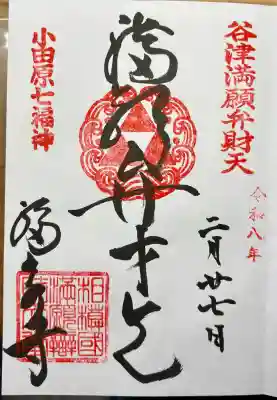 谷津満願弁財天
令和八年
二月廿七日
満願弁才天
小田原七福神
福泉寺
相模國
満願辯